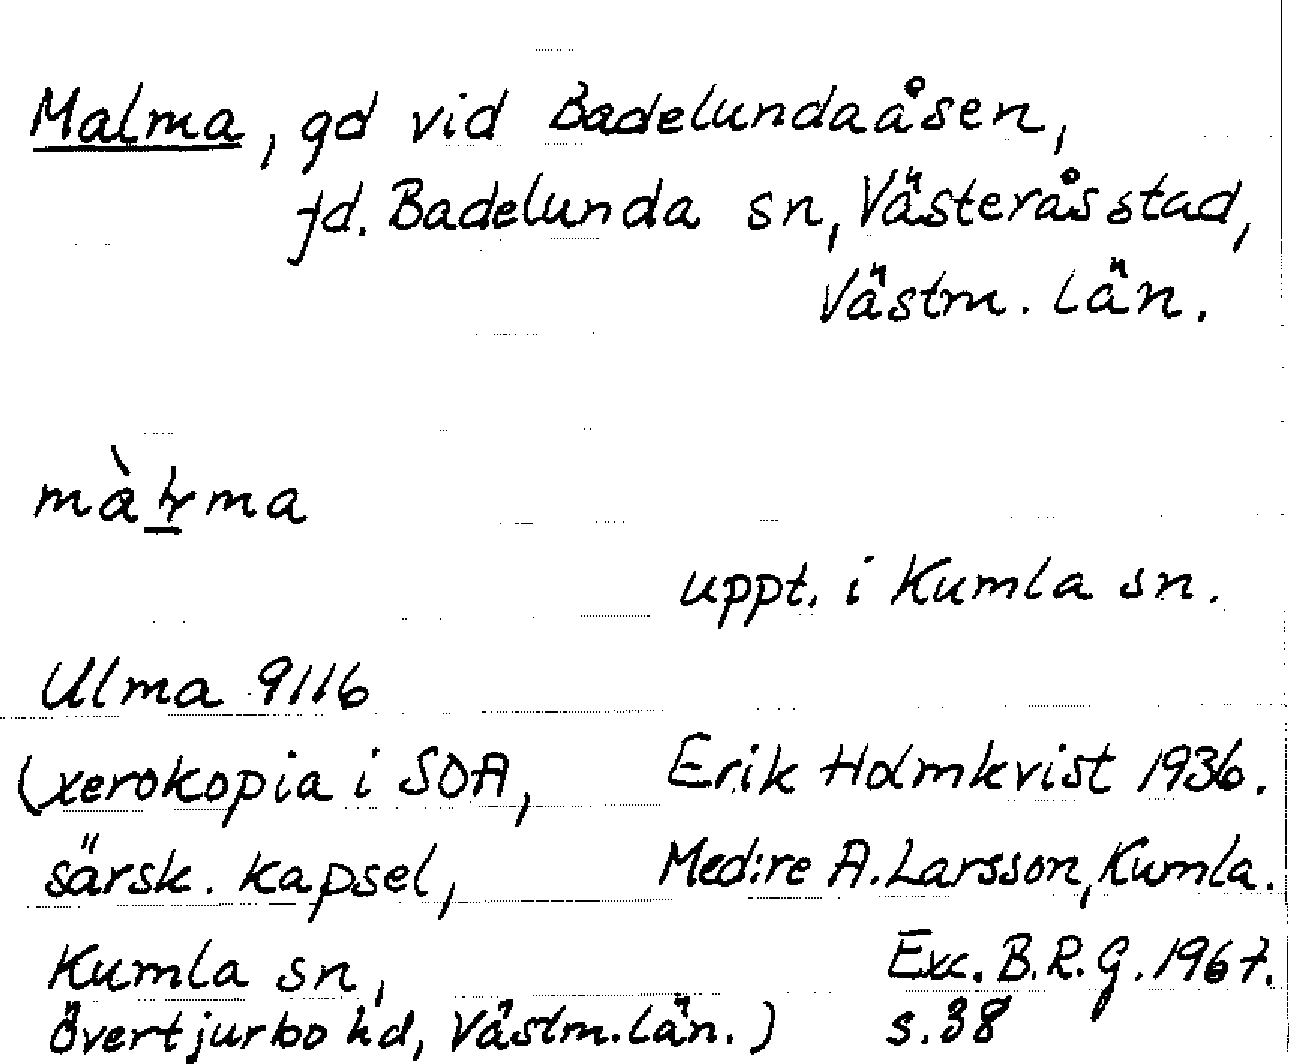 Malma, gd vid Badelundaåsen,
fd. Badelunda sn, Västerås stad,
Västm. län.
uppt. i Kumla sn.
Ulma 9116
(xerokopia i SOA, Erik Holmkvist 1936.
särsk. kapsel, Med:re A. Larsson, Kumla.
Kumla sn, Exc. B.R.G. 1967.
Övertjurbo hd, Västm. län.) s. 38